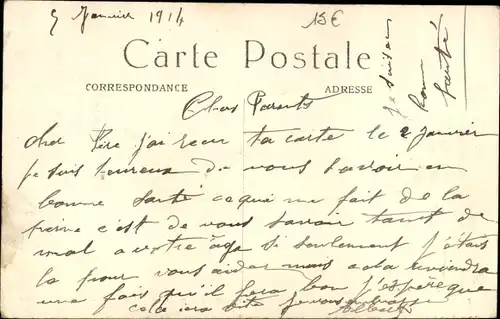 5 Janvier 1914
15€
Carte Postale
CORRESPONDANCE
ADRESSE
Chers Parents
cher Père j'ai recu ta carte le 2 janvier
je suis heureux de vous savoir en
bonne santé ce qui me fait de la
peine c'est de vous savoir tant de
mal a votre age si seulement j'étais
la pour vous aider mais cela viendra
une fois qu'il fera bon j'espere que
cela ira vite je vous
Albert
je suis en
bonne
santé